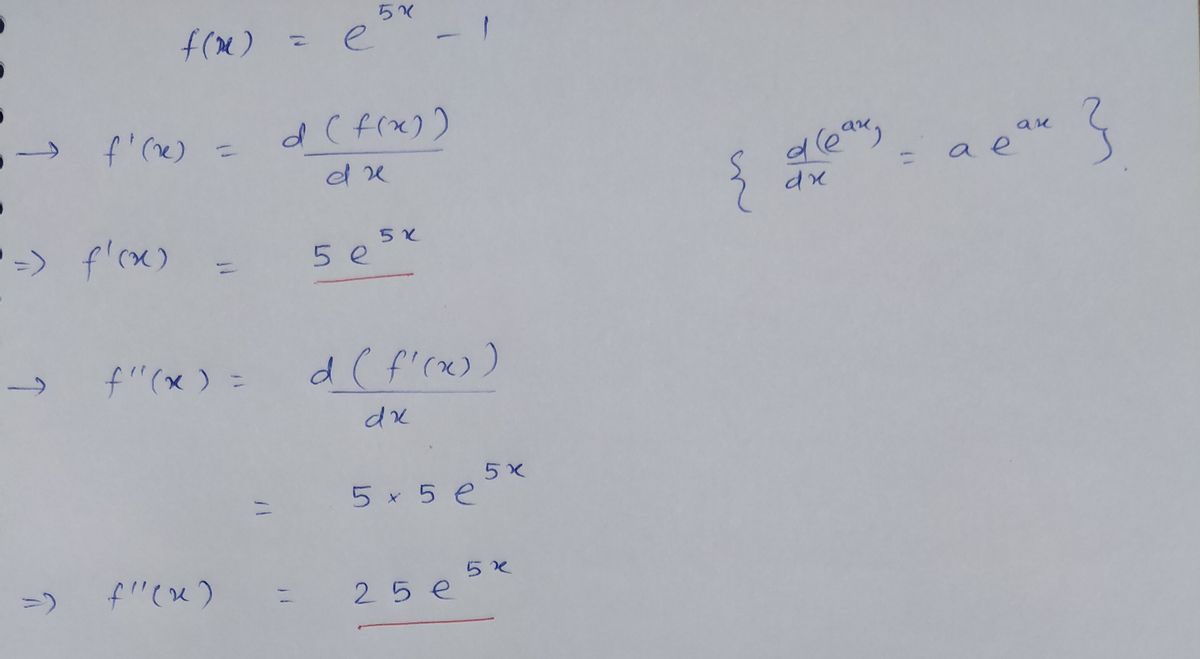 f(x) = e^{5x} - 1
→ f'(x) = \frac{d(f(x))}{dx}
{ \frac{d(e^{ax})}{dx} = a e^{ax} }.
⇒ f'(x) = 5 e^{5x}
→ f''(x) = \frac{d(f'(x))}{dx}
= 5 × 5 e^{5x}
⇒ f''(x) = 25 e^{5x}